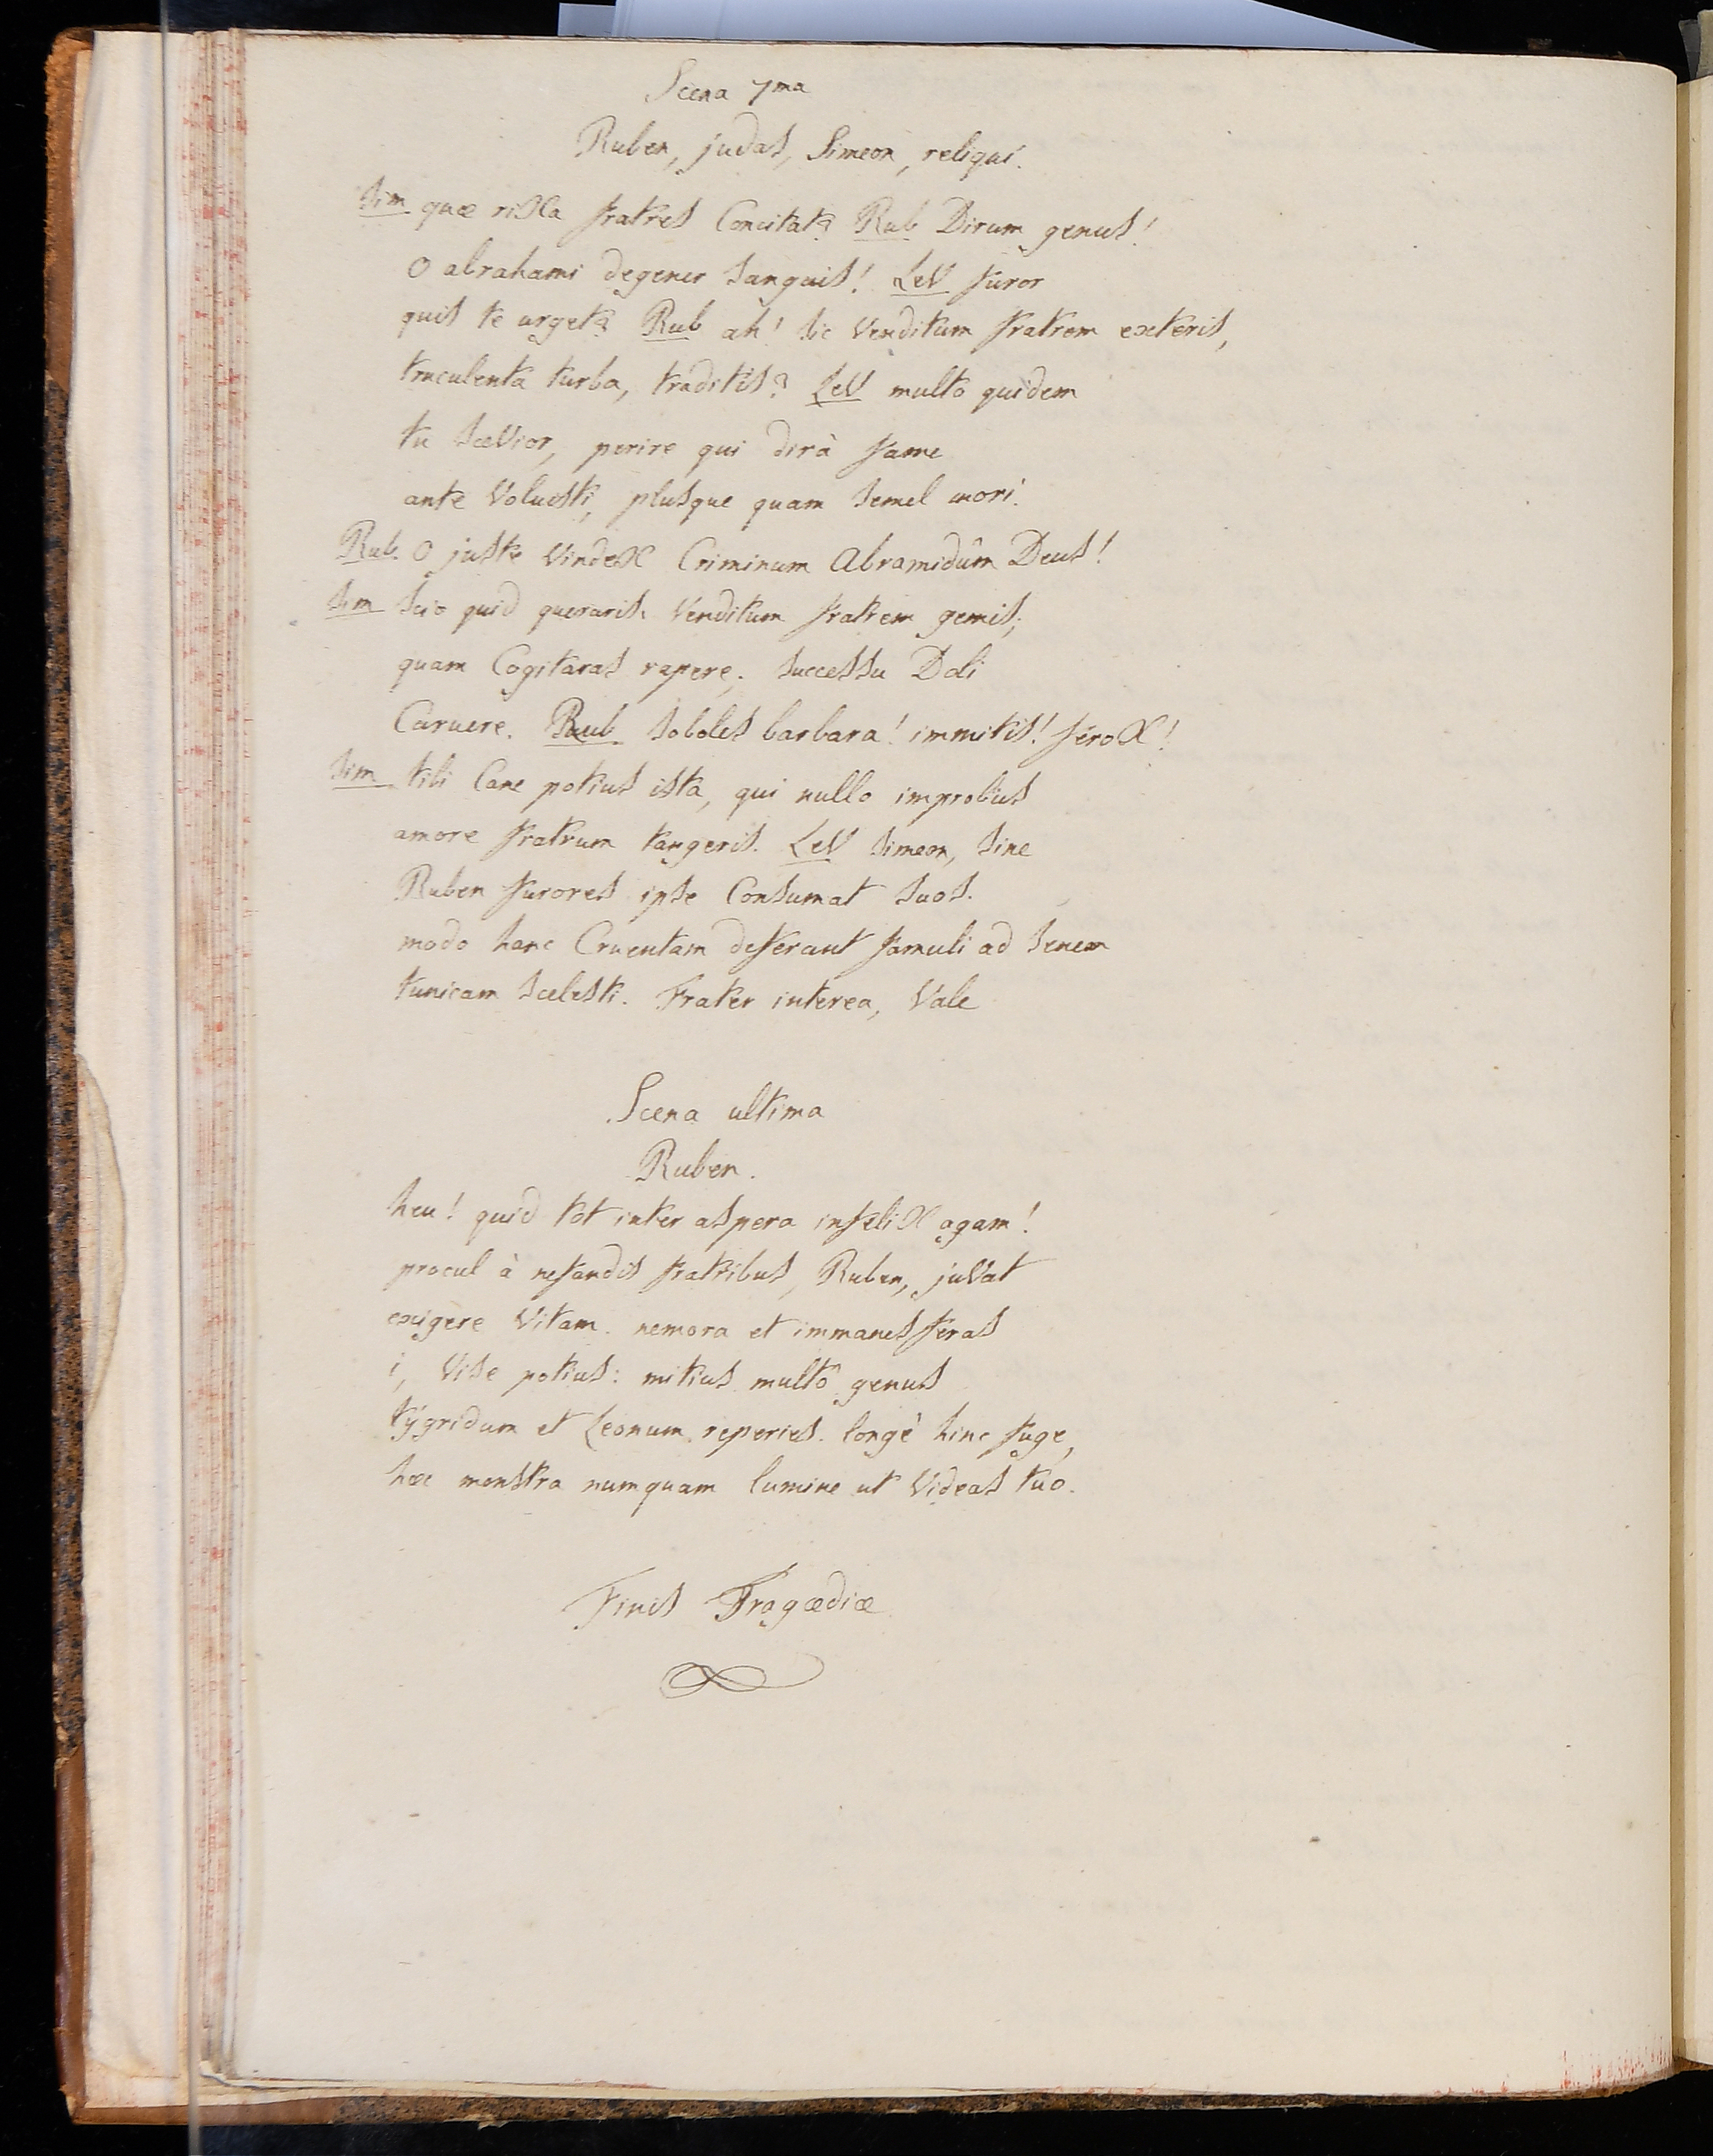 Scena 7ma
Ruben, judas, Simeon, reliqui.
Sim quæ riXa fratres Concitat? Rub Dirum genus!
O abrahami degener sanguis! LeV furor
quis te urget? Rub ah! sic Venditum fratrem exteris,
truculenta turba, traditis? LeV multo quidem
tu sæVior, perire qui dirà fame
ante Voluisti, plusque quam semel mori.
Rub. O juste VindeX Criminum Abramidûm Deus!
Sim Scio quid queraris. Venditum fratrem gemis;
quam Cogitaras rapere; successu Doli
Caruere. Rub soboles barbara! immitis! feroX!
Sim tibi Cane potius ista, qui nullo improbus
amore fratrum tangeris. LeV Simeon, sine
Ruben furores ipse Consumat suos.
modo hanc Cruentam deferant famuli ad senem
tunicam scelesti. Frater interea, Vale
Scena ultima
Ruben.
heu! quid tot inter aspera infeliX agam!
procul à nefandis fratribus, Ruben, juVat
exigere Vitam. nemora et immanes feras
i, Vise potius: mitius multô genus
tÿgridum et Leonum reperies. longè hinc fuge,
hæc monstra numquam lumine ut Videas tuo.
Finis Tragœdiæ